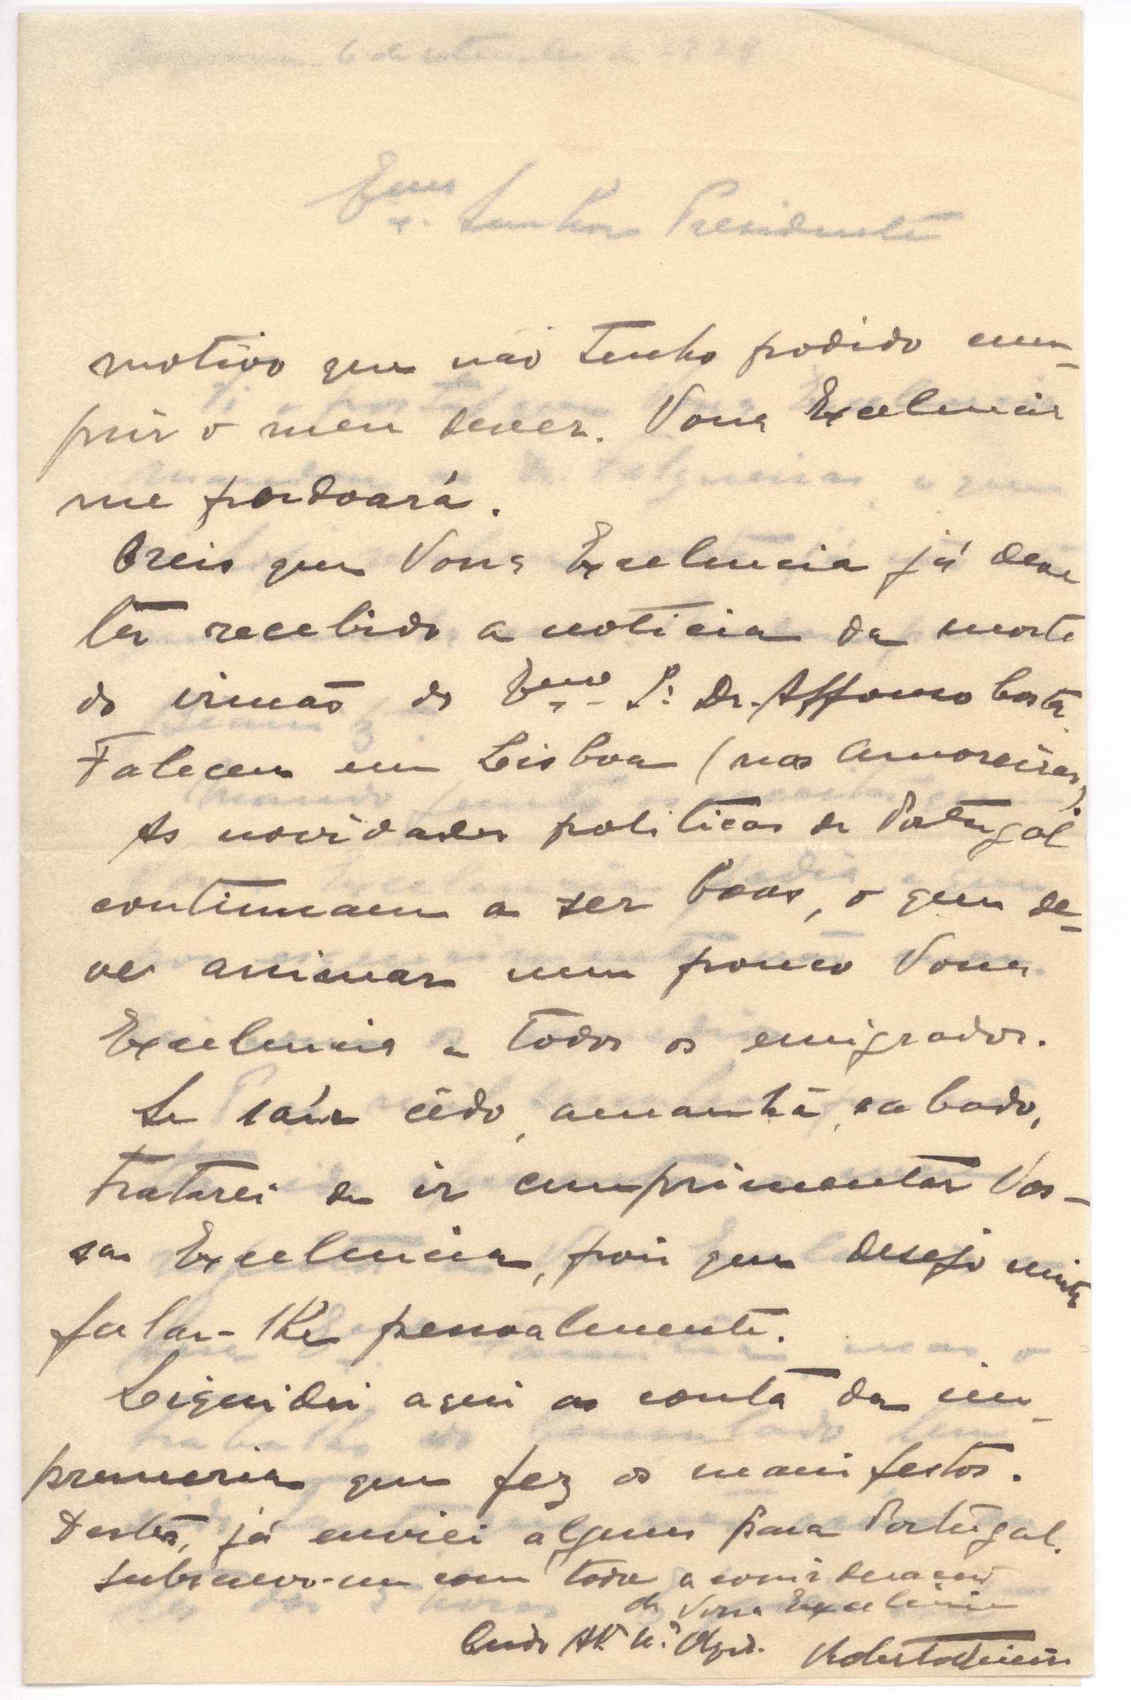 motivo que não tenho podido cum-
prir o meu dever. Vossa Excelencia
me perdoará.
Creio que Vossa Excelencia já deve
ter recebido a noticia da morte
do irmão do Exmo Sr. Dr. Affonso Costa.
Faleceu em Lisboa (nas Amoreiras).
As novidades politicas de Portugal
continuam a ser boas, o que de-
ve animar um pouco Vossa
Excelencia e todos os emigrados.
Se saír cêdo, amanhã, sabado,
tratarei de ir cumprimentar Vos-
sa Excelencia, pois que desejo muito
falar-lhe pessoalmente.
Liquidei aqui a conta da im-
premeria que fez os manifestos.
Destes, já enviei alguns para Portugal.
Subscrevo-me com toda a consideração
de Vossa Excelencia
Exmo Senhor Presidente
6 de setembro de